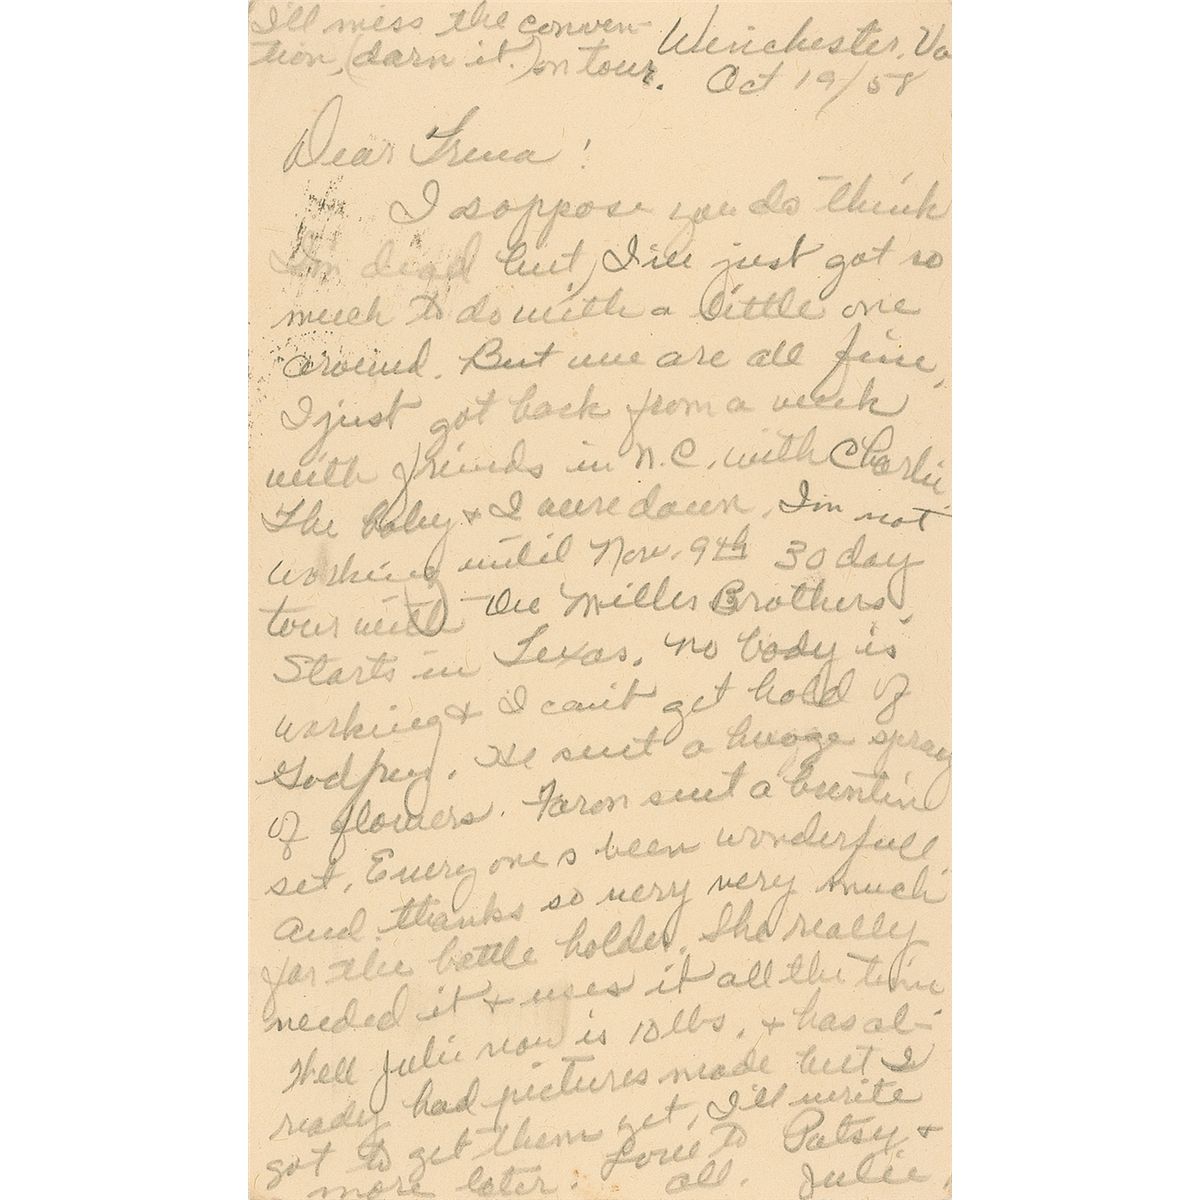 I'll miss the conven-
tion, (darn it.) on tour.
Winchester, Va
Oct 19/58
Dear Trena!
I soppose you do think
I'm dead but, I've just got so
much to do with a little one
around. But we are all fine,
I just got back from a week
with friends in N.C. with Charlie
The baby & I were down. I'm not
working until Nov. 9th 30 day
tour with The Miller Brothers,
Starts in Texas. No body is
working & I can't get hold of
Godfrey. He sent a huage spray
of flowers. Faron sent a buntin
set. Every one s been wonderfull
and thanks so very very much
for the bottle holder. She really
needed it & uses it all the time
Well Julie now is 10 lbs. & has al-
ready had pictures made but I
got to get them yet, I'll write
more later. Love to all. Patsy &
Julie,